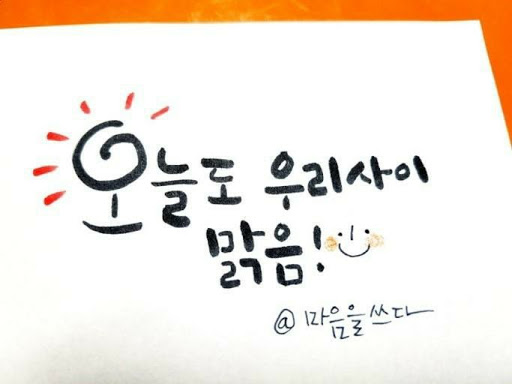 오늘도 우리사이
맑음!
@마음을쓰다